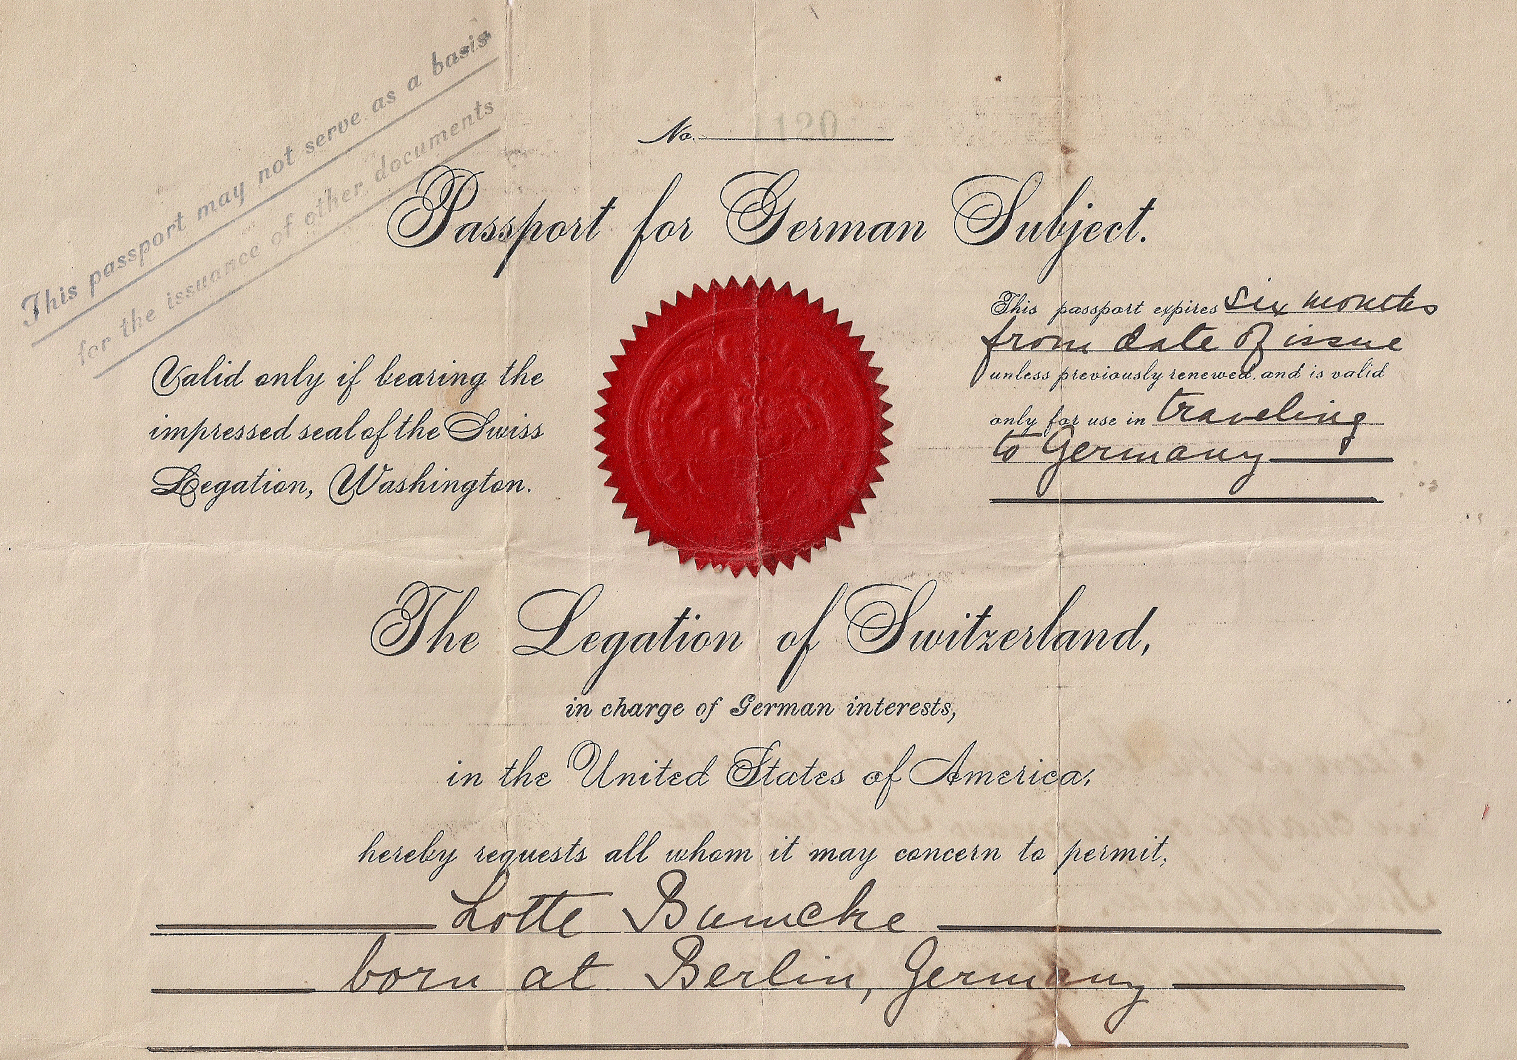 This passport may not serve as a basis
for the issuance of other documents
No. 1120
Passport for German Subject.
Valid only if bearing the
impressed seal of the Swiss
Legation, Washington.
This passport expires six months
from date of issue
unless previously renewed and is valid
only for use in traveling
to Germany
The Legation of Switzerland,
in charge of German interests,
in the United States of America,
hereby requests all whom it may concern to permit,
Lotte Bumcke
born at Berlin, Germany